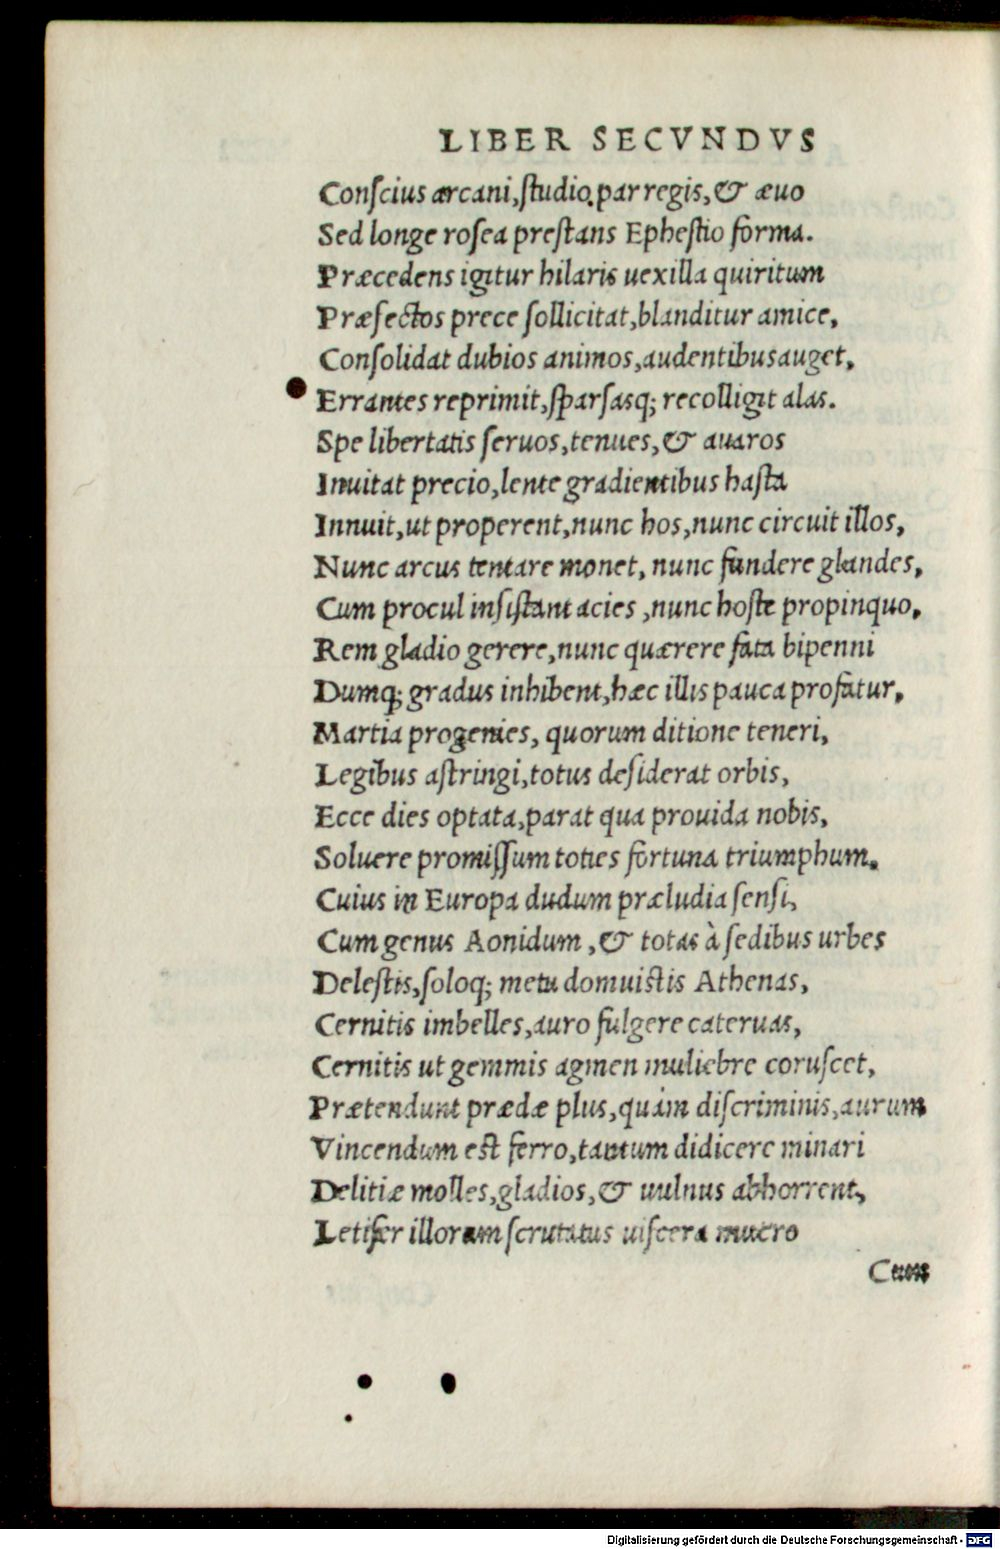 LIBER SECVNDVS
Conſcius arcani,ſtudio par regis,& æuo
Sed longe roſea preſtans Epheſtio forma.
Præcedens igitur hilaris uexilla quiritum
Præfectos prece ſollicitat,blanditur amice,
Conſolidat dubios animos,audentibus auget,
Errantes reprimit,ſparſasq; recolligit alas.
Spe libertatis ſeruos,tenues,& auaros
Inuitat precio,lente gradientibus haſta
Innuit,ut properent,nunc hos,nunc circuit illos,
Nunc arcus tentare monet, nunc fundere glandes,
Cum procul inſiſtant acies ,nunc hoſte propinquo,
Rem gladio gerere,nunc quærere fata bipenni
Dumq; gradus inhibent,hæc illis pauca profatur,
Martia progenies, quorum ditione teneri,
Legibus aſtringi,totus deſiderat orbis,
Ecce dies optata,parat qua prouida nobis,
Soluere promiſſum toties fortuna triumphum.
Cuius in Europa dudum præludia ſenſi,
Cum genus Aonidum ,& totas à ſedibus urbes
Deleſtis,ſoloq; metu domuiſtis Athenas,
Cernitis imbelles,auro fulgere cateruas,
Cernitis ut gemmis agmen muliebre coruſcet,
Prætendunt prædæ plus,quàm diſcriminis,aurum
Vincendum eſt ferro,tantum didicere minari
Delitiæ molles,gladios,& uulnus abhorrent,
Letifer illorum ſcrutatus uiſcera mucro
Digitalisierung gefördert durch die Deutsche Forschungsgemeinschaft - DFG